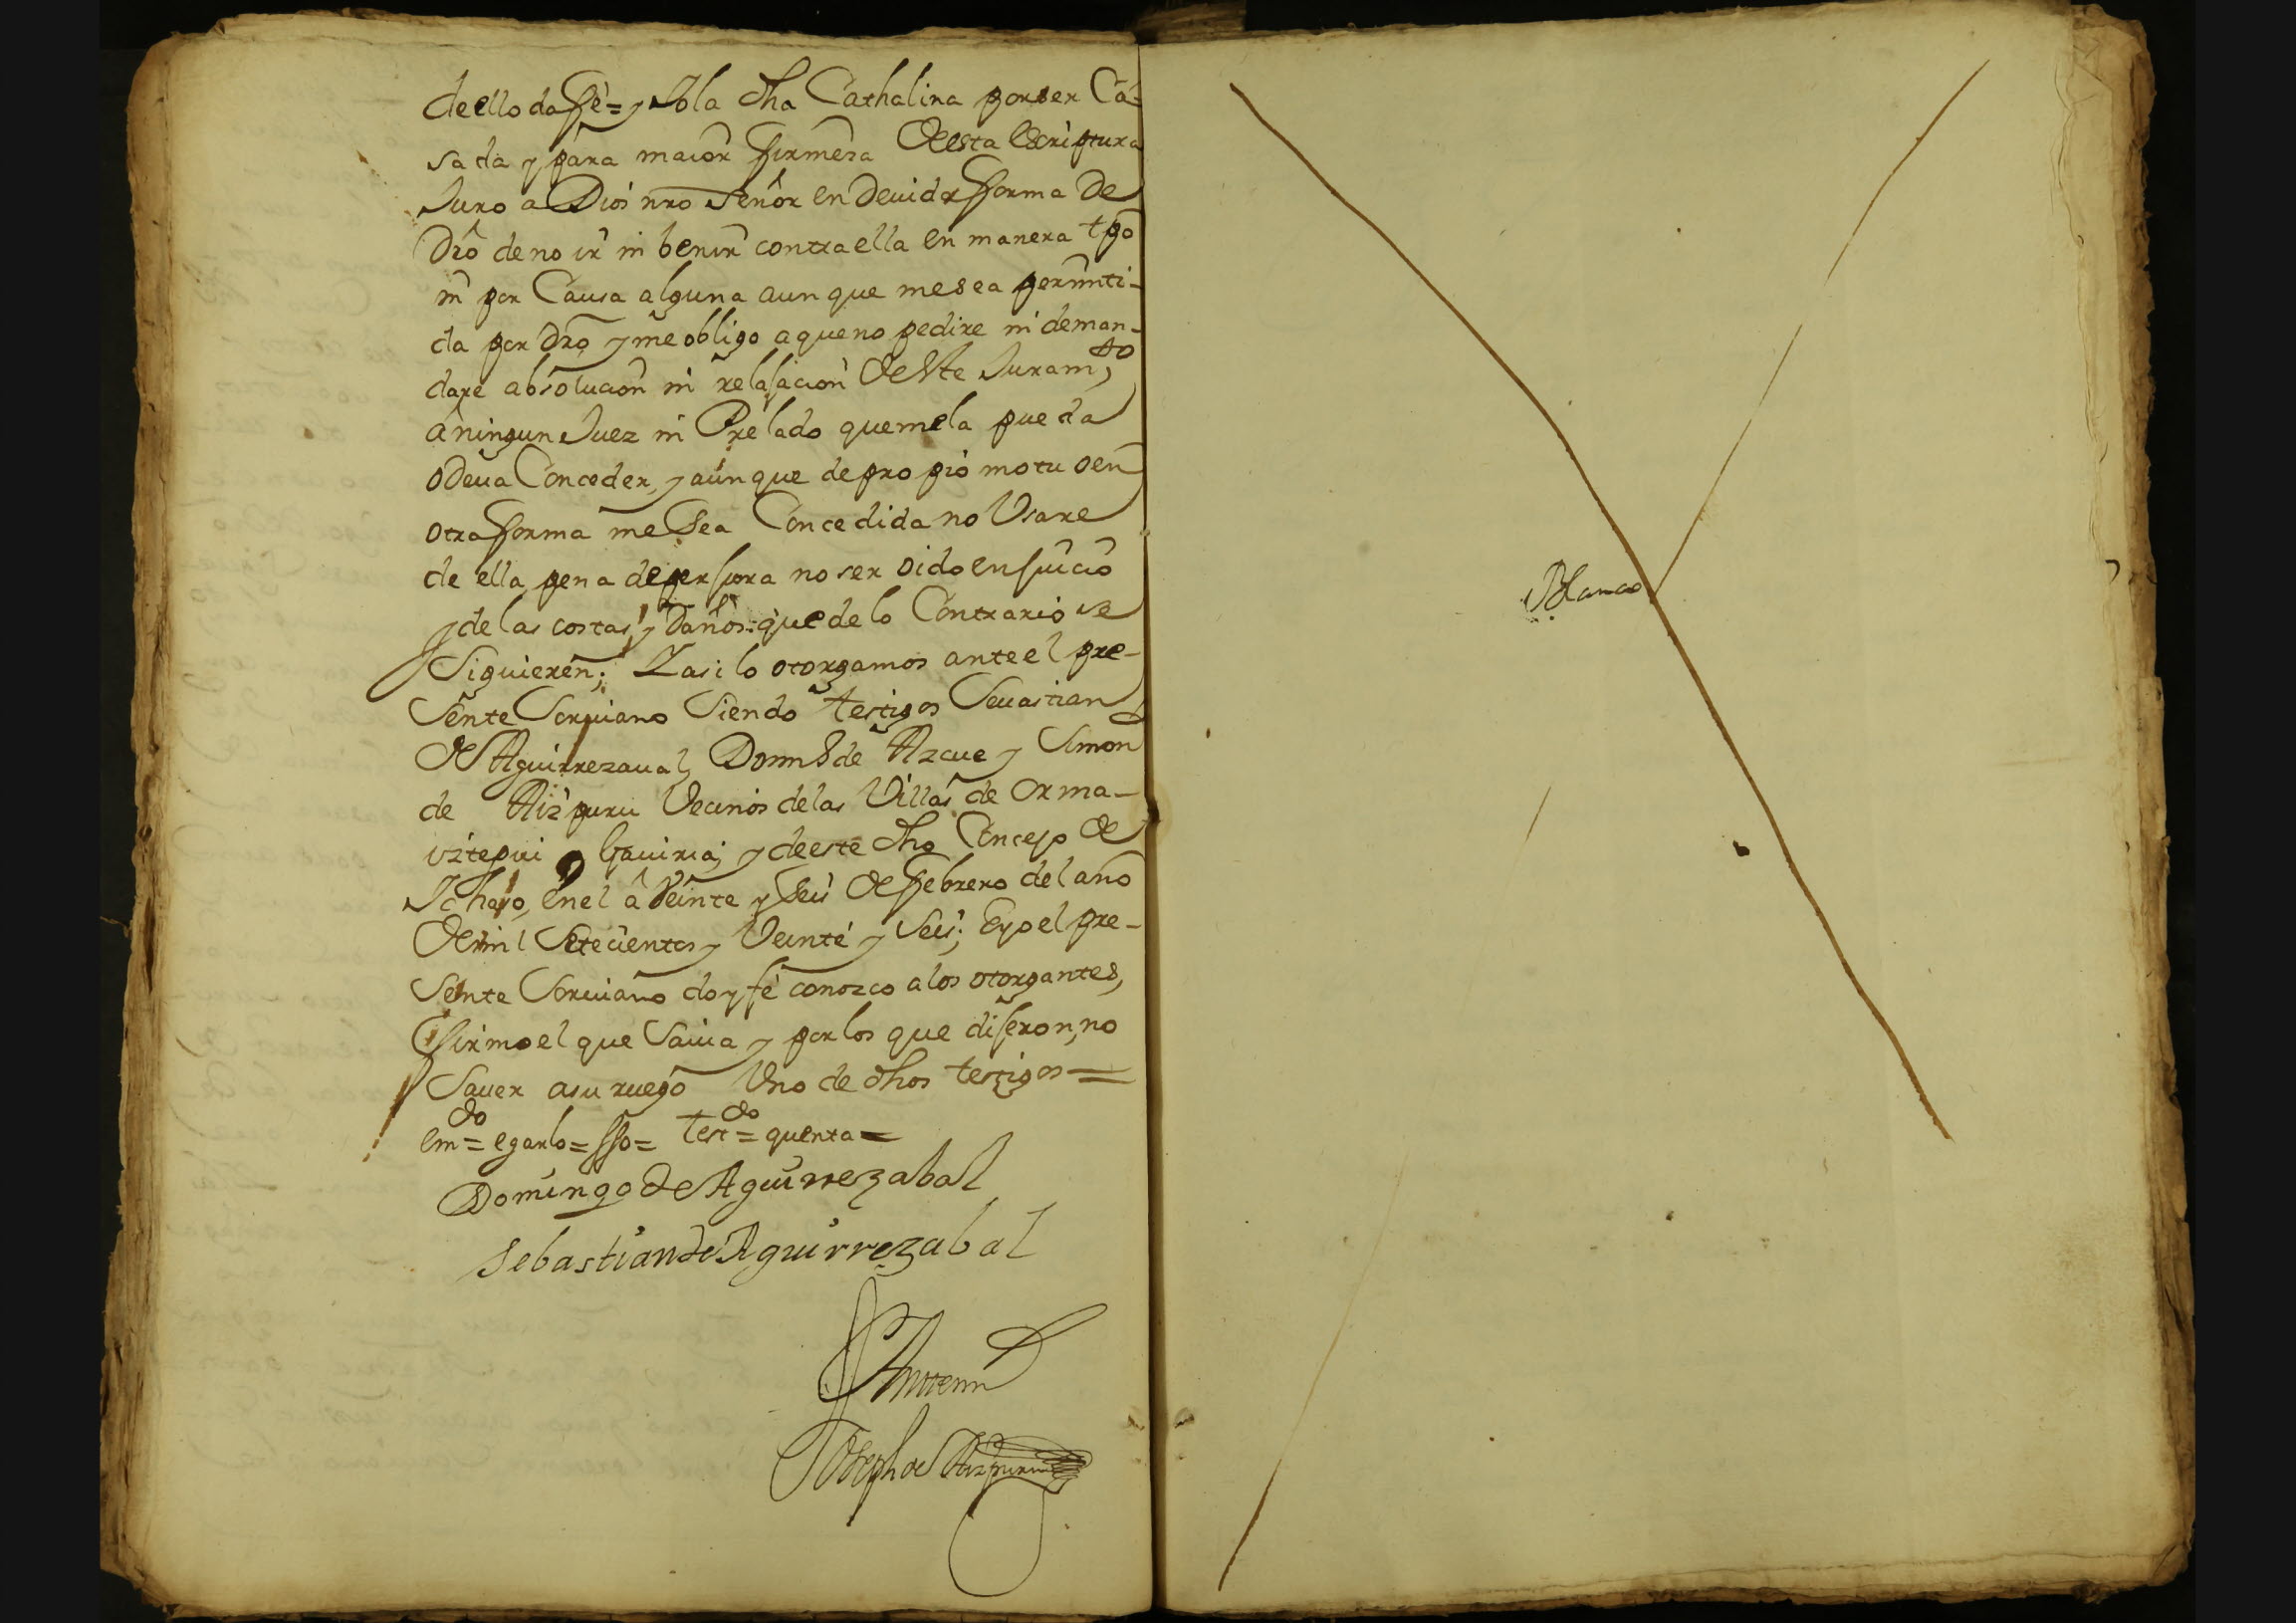 de ello da fe = y Yo la dha Cathalina por ser Ca-
sada y para maior firmesa de esta Escriptura
Juro a Dios nro Señor en Deuida forma De
Dro de no ir ni benir contra ella en manera tpo
ni por Causa alguna aun que me sea permiti-
da por dro y me obligo a que no pedire ni deman-
dare absolucion ni relajacion de este Juramto
a ningun Juez ni Prelado que me la pueda
o Deua Conceder, y aunque de propio motu o en
otra forma me sea Concedida no Vsare
de ella pena de perjura no ser oido en juicio
y de las costas y Daños que de lo Contrario se
Siguieren; Y asi lo otorgamos ante el pre-
sente Scriuano Siendo testigos Seuastian
de Aguirrezaual, Domos de Azcue y Simon
de Aizpuru Vecinos de las Villas de Orma-
iztegui y Gauiria; y de este dho Concejo de
Ichaso, en el a Veinte y Seis de Febrero del año
de mil Setecientos y Veinte y Seis; E yo el pre-
sente Scriuano doy fe conozco a los otorgantes,
Firmo el que Sauia y por los que dijeron, no
Sauer a su ruego Vno de dhos testigos =
emdo = egarlo = sso = testdo = quenta =
Domingo de Aguirrezabal
Sebastian de Aguirrezabal
Ante mi
Joseph de Aizpuru
Blanco